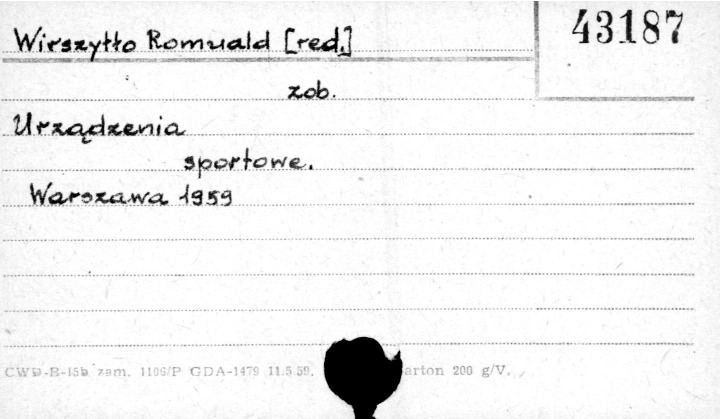 Wirszyłło Romuald [red.]
43187
zob.
Urządzenia
sportowe.
Warszawa 1959
CWD-B-15b zam. 1106/P GDA-1479 11.5.59. arton 200 g/V.